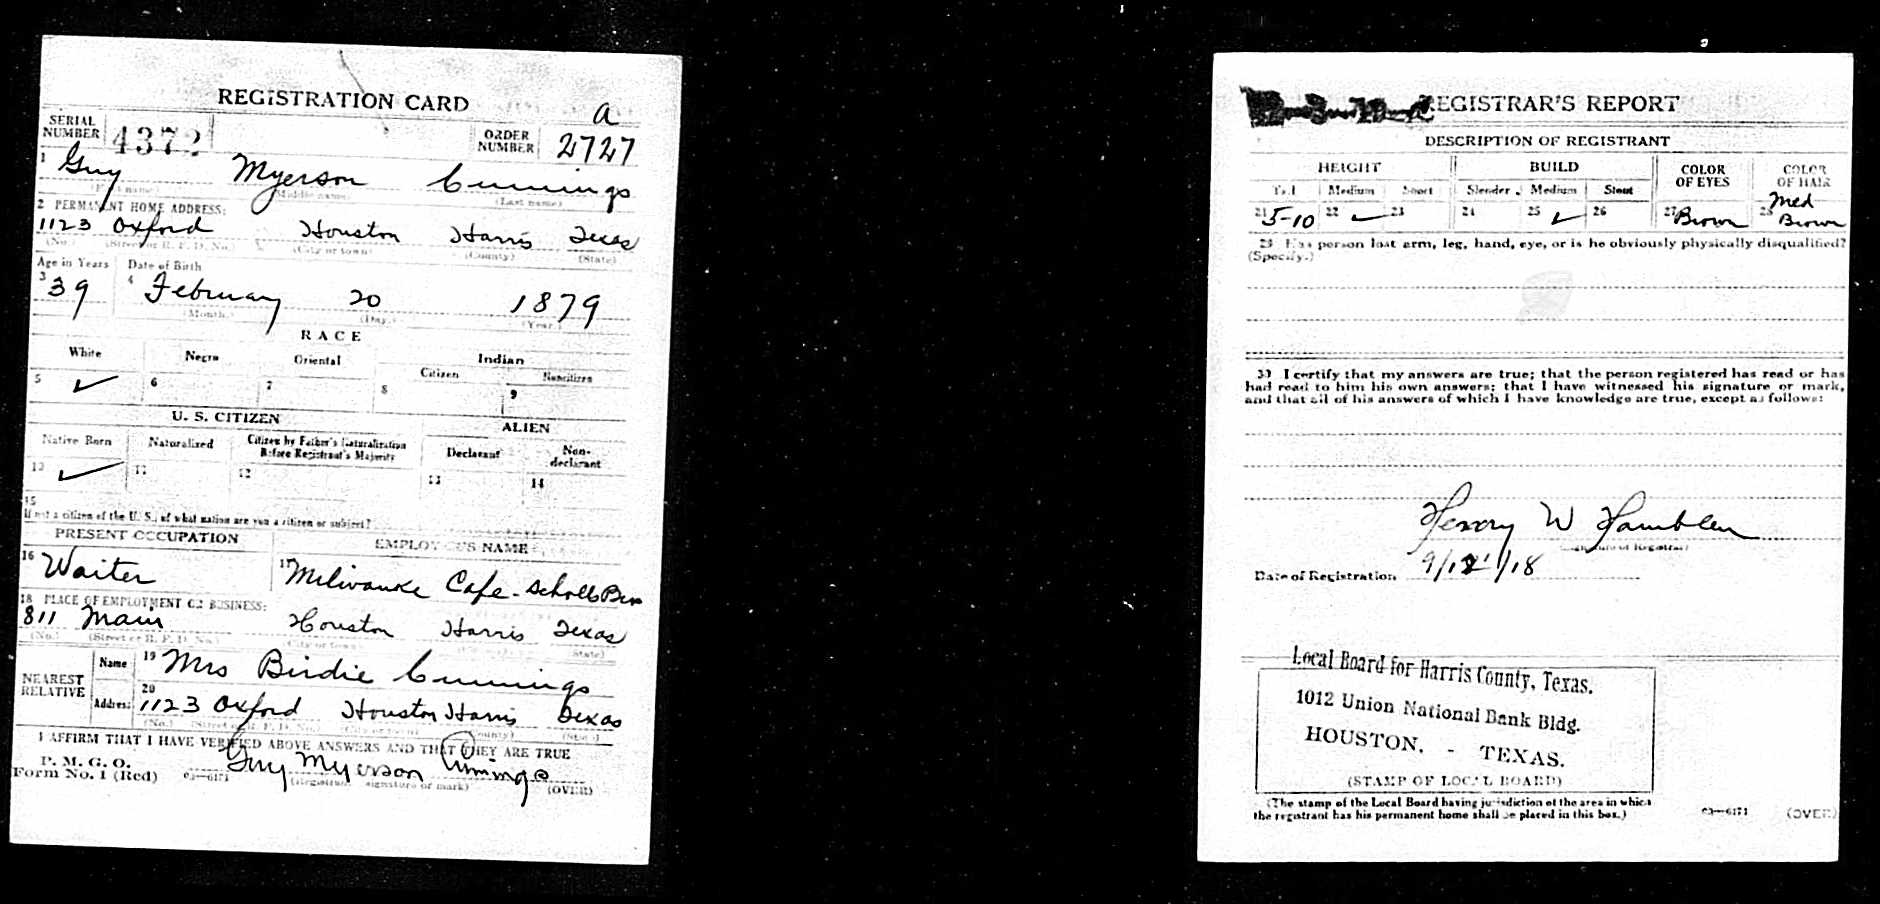 REGISTRATION CARD
SERIAL NUMBER 4372 ORDER NUMBER a 2727
1 Guy Myerson Cummings
(First name) (Middle name) (Last name)
2 PERMANENT HOME ADDRESS:
1123 Oxford Houston Harris Texas
(No.) (Street or R. F. D. No.) (City or town) (County) (State)
Age in Years Date of Birth
3 39 4 February 20 1879
(Month.) (Day.) (Year.)
RACE
White Negro Oriental Indian
Citizen Noncitizen
5 ✓ 6 7 8 9
U. S. CITIZEN ALIEN
Native Born Naturalized Citizen by Father's Naturalization Before Registrant's Majority Declarant Non-declarant
10 ✓ 11 12 13 14
15
If not a citizen of the U. S., of what nation are you a citizen or subject?
PRESENT OCCUPATION EMPLOYER'S NAME
16 Waiter 17 Milwauke Cafe - Scholls Bros
18 PLACE OF EMPLOYMENT OR BUSINESS:
811 Main Houston Harris Texas
(No.) (Street or R. F. D. No.) (City or town) (State)
NEAREST RELATIVE Name 19 Mrs Birdie Cummings
Address 20 1123 Oxford Houston Harris Texas
(No.) (Street or R. F. D. No.) (City or town) (County) (State)
I AFFIRM THAT I HAVE VERIFIED ABOVE ANSWERS AND THAT THEY ARE TRUE
P. M. G. O.
Form No. 1 (Red) 03—6171 Guy Myerson Cummings
(Registrant's signature or mark) (OVER)
REGISTRAR'S REPORT
DESCRIPTION OF REGISTRANT
HEIGHT BUILD COLOR OF EYES COLOR OF HAIR
Tall Medium Short Slender Medium Stout
21 5-10 22 ✓ 23 24 25 ✓ 26 27 Brown 28 Med Brown
29 Has person lost arm, leg, hand, eye, or is he obviously physically disqualified?
(Specify.)
30 I certify that my answers are true; that the person registered has read or has
had read to him his own answers; that I have witnessed his signature or mark,
and that all of his answers of which I have knowledge are true, except as follows:
Henry W Hamblen
(Signature of Registrar)
Date of Registration 9/12/18
Local Board for Harris County, Texas.
1012 Union National Bank Bldg.
HOUSTON, - TEXAS.
(STAMP OF LOCAL BOARD)
(The stamp of the Local Board having jurisdiction of the area in which
the registrant has his permanent home shall be placed in this box.)
03—6171 (OVER)